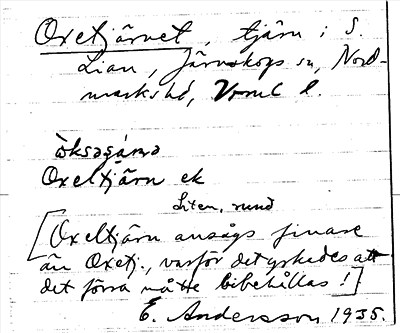 Oxetjärnet, tjärn i S.
Lian, Järnskogs sn, Nord-
marks hd, Vrml. l.
Oxeltjärn ek
Liten, rund
[Oxeltjärn ansågs finare
än Oxetj., varför det yrkades att
det förra måtte bibehållas!]
E. Andersson 1935.